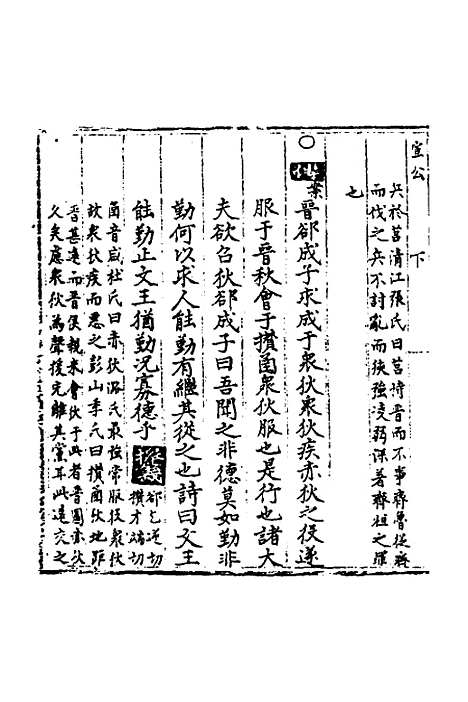 宣公 下
兵於莒清江張氏曰莒恃晉而不事齊魯從齊
而伐之兵不討亂而挾強凌弱深著齊桓之罪
也
○傳 晉郤成子求成于衆狄衆狄疾赤狄之役遂
服于晉秋會于攢函衆狄服也是行也諸大
夫欲召狄郤成子曰吾聞之非德莫如勤非
勤何以求人能勤有繼其從之也詩曰文王
旣勤止文王猶勤況寡德乎 郤乞逆切
攢才端切
函音咸杜氏曰赤狄潞氏最強常服役衆狄
故衆狄疾而惡之彭山季氏曰攢函狄地
晉甚遠而晉侯親來會狄于此者晉圖赤狄
久矣慮衆狄為聲援先離其黨耳此遠交之